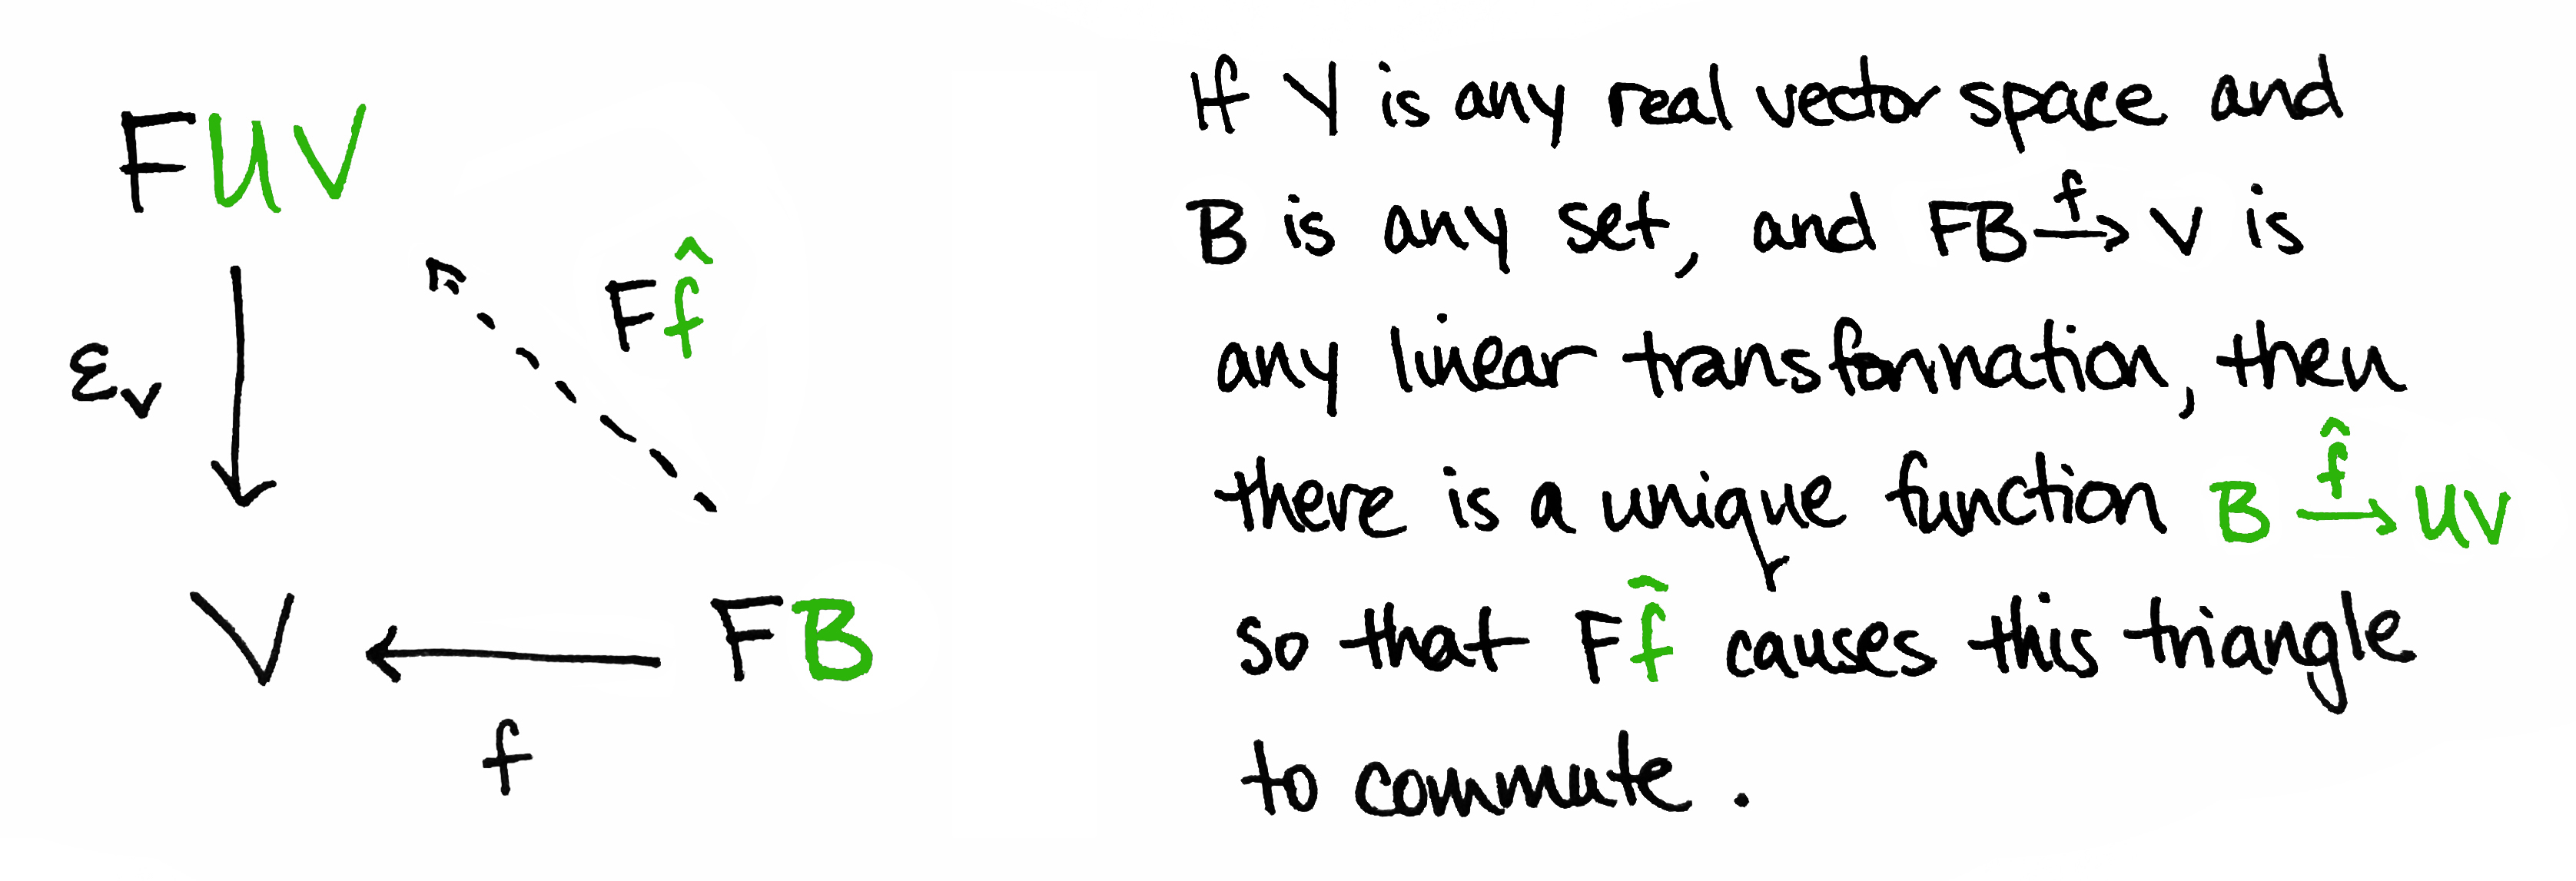 FUV
Ff̂
ε_V
V
FB
f
If V is any real vector space and
B is any set, and FB →^f V is
any linear transformation, then
there is a unique function B →^f̂ UV
so that Ff̂ causes this triangle
to commute.